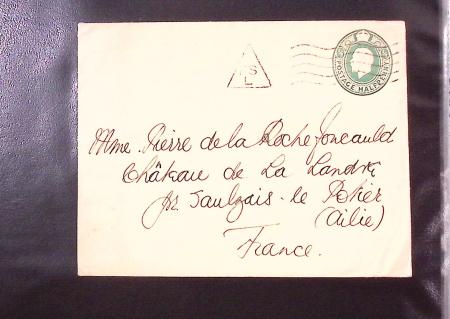 S
L
POSTAGE HALFPENNY
Mme. Pierre de la Rochefoucauld
Château de La Landre
pr Saulzais-le Potier
(Allier)
France.